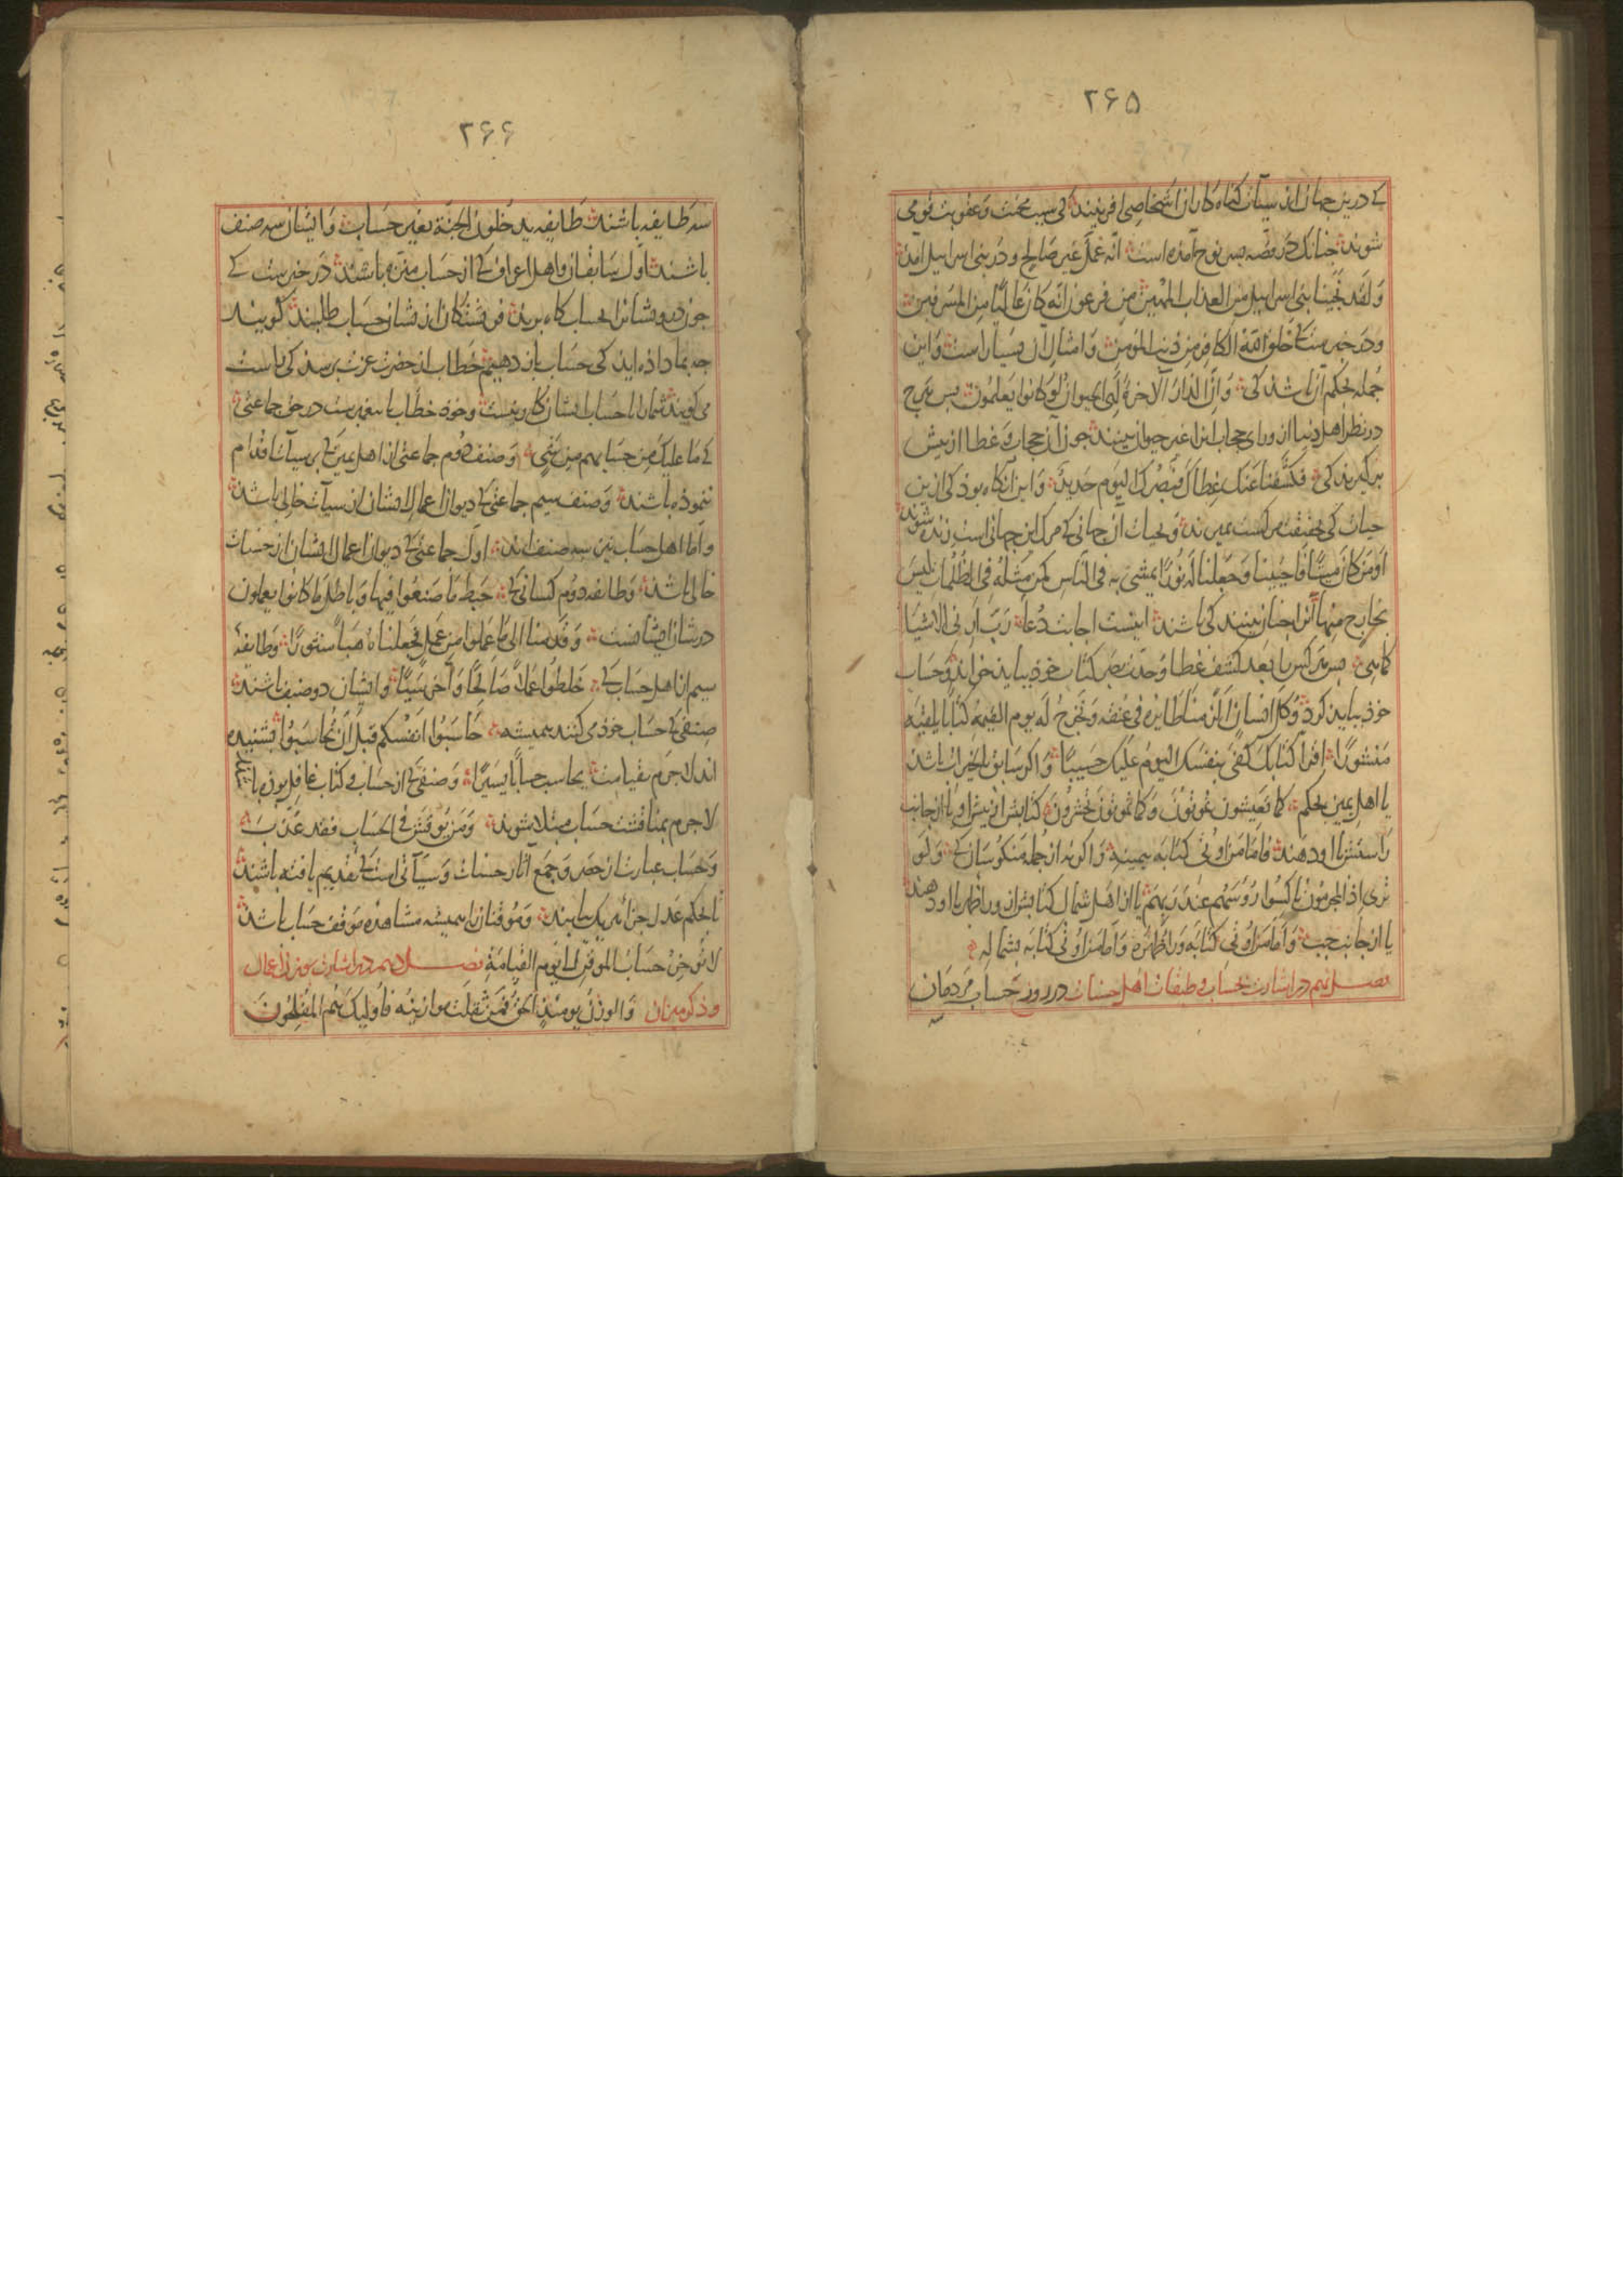 ۲۶۵
کے درین جهان از سیآت کناه کاران اشخاصی افرینند کی سبب محنت و عقوبت قومی
شوند جنانک در قصه پسر نوح آمده است انه عمل غیر صالح و در بنی اسرایل آمد
و لقد نجینا بنی اسرایل من العذاب المهین من فرعون انه کان عالیا من المسرفین
و در خبر ست کے خلق الله الکافر من ذنب المؤمن و امثال آن بسیار است و این
جمله بحکم آن باشد کی و ان الدار الآخرة لهی الحیوان لو کانوا یعلمون بس هرچ
در نظر اهل دنیا از ورای حجاب انرا غیر حیوان بینند جون آن حجاب و غطا از پیش
برکیرند کی فکشفنا عنک غطاک فبصرک الیوم حدید و این آنکاه بود کی ازین
حیات کی بحقیقت مرکست بمیرند و بحیات آن جهانی کے مرک این جهانی است زنده شوند
اومن کان میتا فاحییناه و جعلنا له نورا یمشی به فی الناس کمن مثله فی الظلمات لیس
بخارج منها آنرا جنان بینند کی باشد اینست اجابت دعا رب ارنی الاشیا
کما هی بس هر کس را بعد کشف غطا و حدت بصر کتاب خود بباید خواند و حساب
خود بباید کرد و کل انسان الزمناه طایره فی عنقه و نخرج له یوم القیمة کتابا یلقیه
منشورا اقرا کتابک کفی بنفسک الیوم علیک حسیبا و اکر سابق بالخیرات باشد
یا اهل یمین بحکم کما تعیشون تموتون و کما تموتون تحشرون کتابش از پیش او یا از جانب
راستش با او دهند فاما من اوتی کتابه بیمینه و اکر نه از جمله منکوسان کے و لو
تری اذ المجرمون ناکسوا رؤسهم عند ربهم یا از اهل شمال کتابش از وراظهر با او دهند
یا از جانب جب و اما من اوتی کتابه وراظهره و اما من اوتی کتابه بشماله
فصل نهم در اشارت بحساب و طبقات اهل حساب در روز حساب مردمان
۲۶۶
سه طایفه باشند طایفه یدخلون الجنة بغیر حساب و ایشان سه صنف
باشند اول سابقان و اهل اعراف کے از حساب منزه باشند در خبر ست کے
جون درویشانرا بحساب کاه برند فرشتکان از شان حساب طلبند کویند
جه بما داده اید کی حساب باز دهیم خطاب از حضرت عزت برسد کی راست
می کویند شما را با حساب ایشان کار نیست و خود خطاب با پیغمبر ست در حق جماعتی
کے ما علیک من حسابهم من شی و صنف دوم جماعتی از اهل یمین کے بر سیآت اقدام
ننموده باشند و صنف سیم جماعتی کے دیوان اعمال ایشان از سیآت خالی باشد
و اما اهل حساب نیز سه صنف اند اول جماعتی کے دیوان اعمال ایشان از حسنات
خالی باشد و طایفه دوم کسانی کے حبط ما صنعوا فیها و باطل ما کانوا یعملون
در شان ایشانست و قدمنا الی ما عملوا من عمل فجعلناه هباء منثورا و طایفه
سیم از اهل حساب کے خلطوا عملا صالحا و آخر سیئا و ایشان دو صنف باشند
صنفی کے حساب خود می کنند همیشه حاسبوا انفسکم قبل ان تحاسبوا بشنیده
اند لاجرم بقیامت یحاسب حسابا یسیرا و صنفی کے از حساب و کتاب غافل بوده باشند
لاجرم بمناقشت حساب مبتلا شوند و من نوقش فی الحساب فقد عذب
و حساب عبارت از حصر و جمع آثار حسنات و سیآتی است کے تقدیم یافته باشد
تا بحکم عدل جزا هر یک بیابند و موقنان را همیشه مشاهده موقف حساب باشد
لا یؤخر حساب المؤمن الی یوم القیامة فصل دهم در اشارت بوزن اعمال
و ذکر میزان و الوزن یومئذ الحق فمن ثقلت موازینه فاولیک هم المفلحون